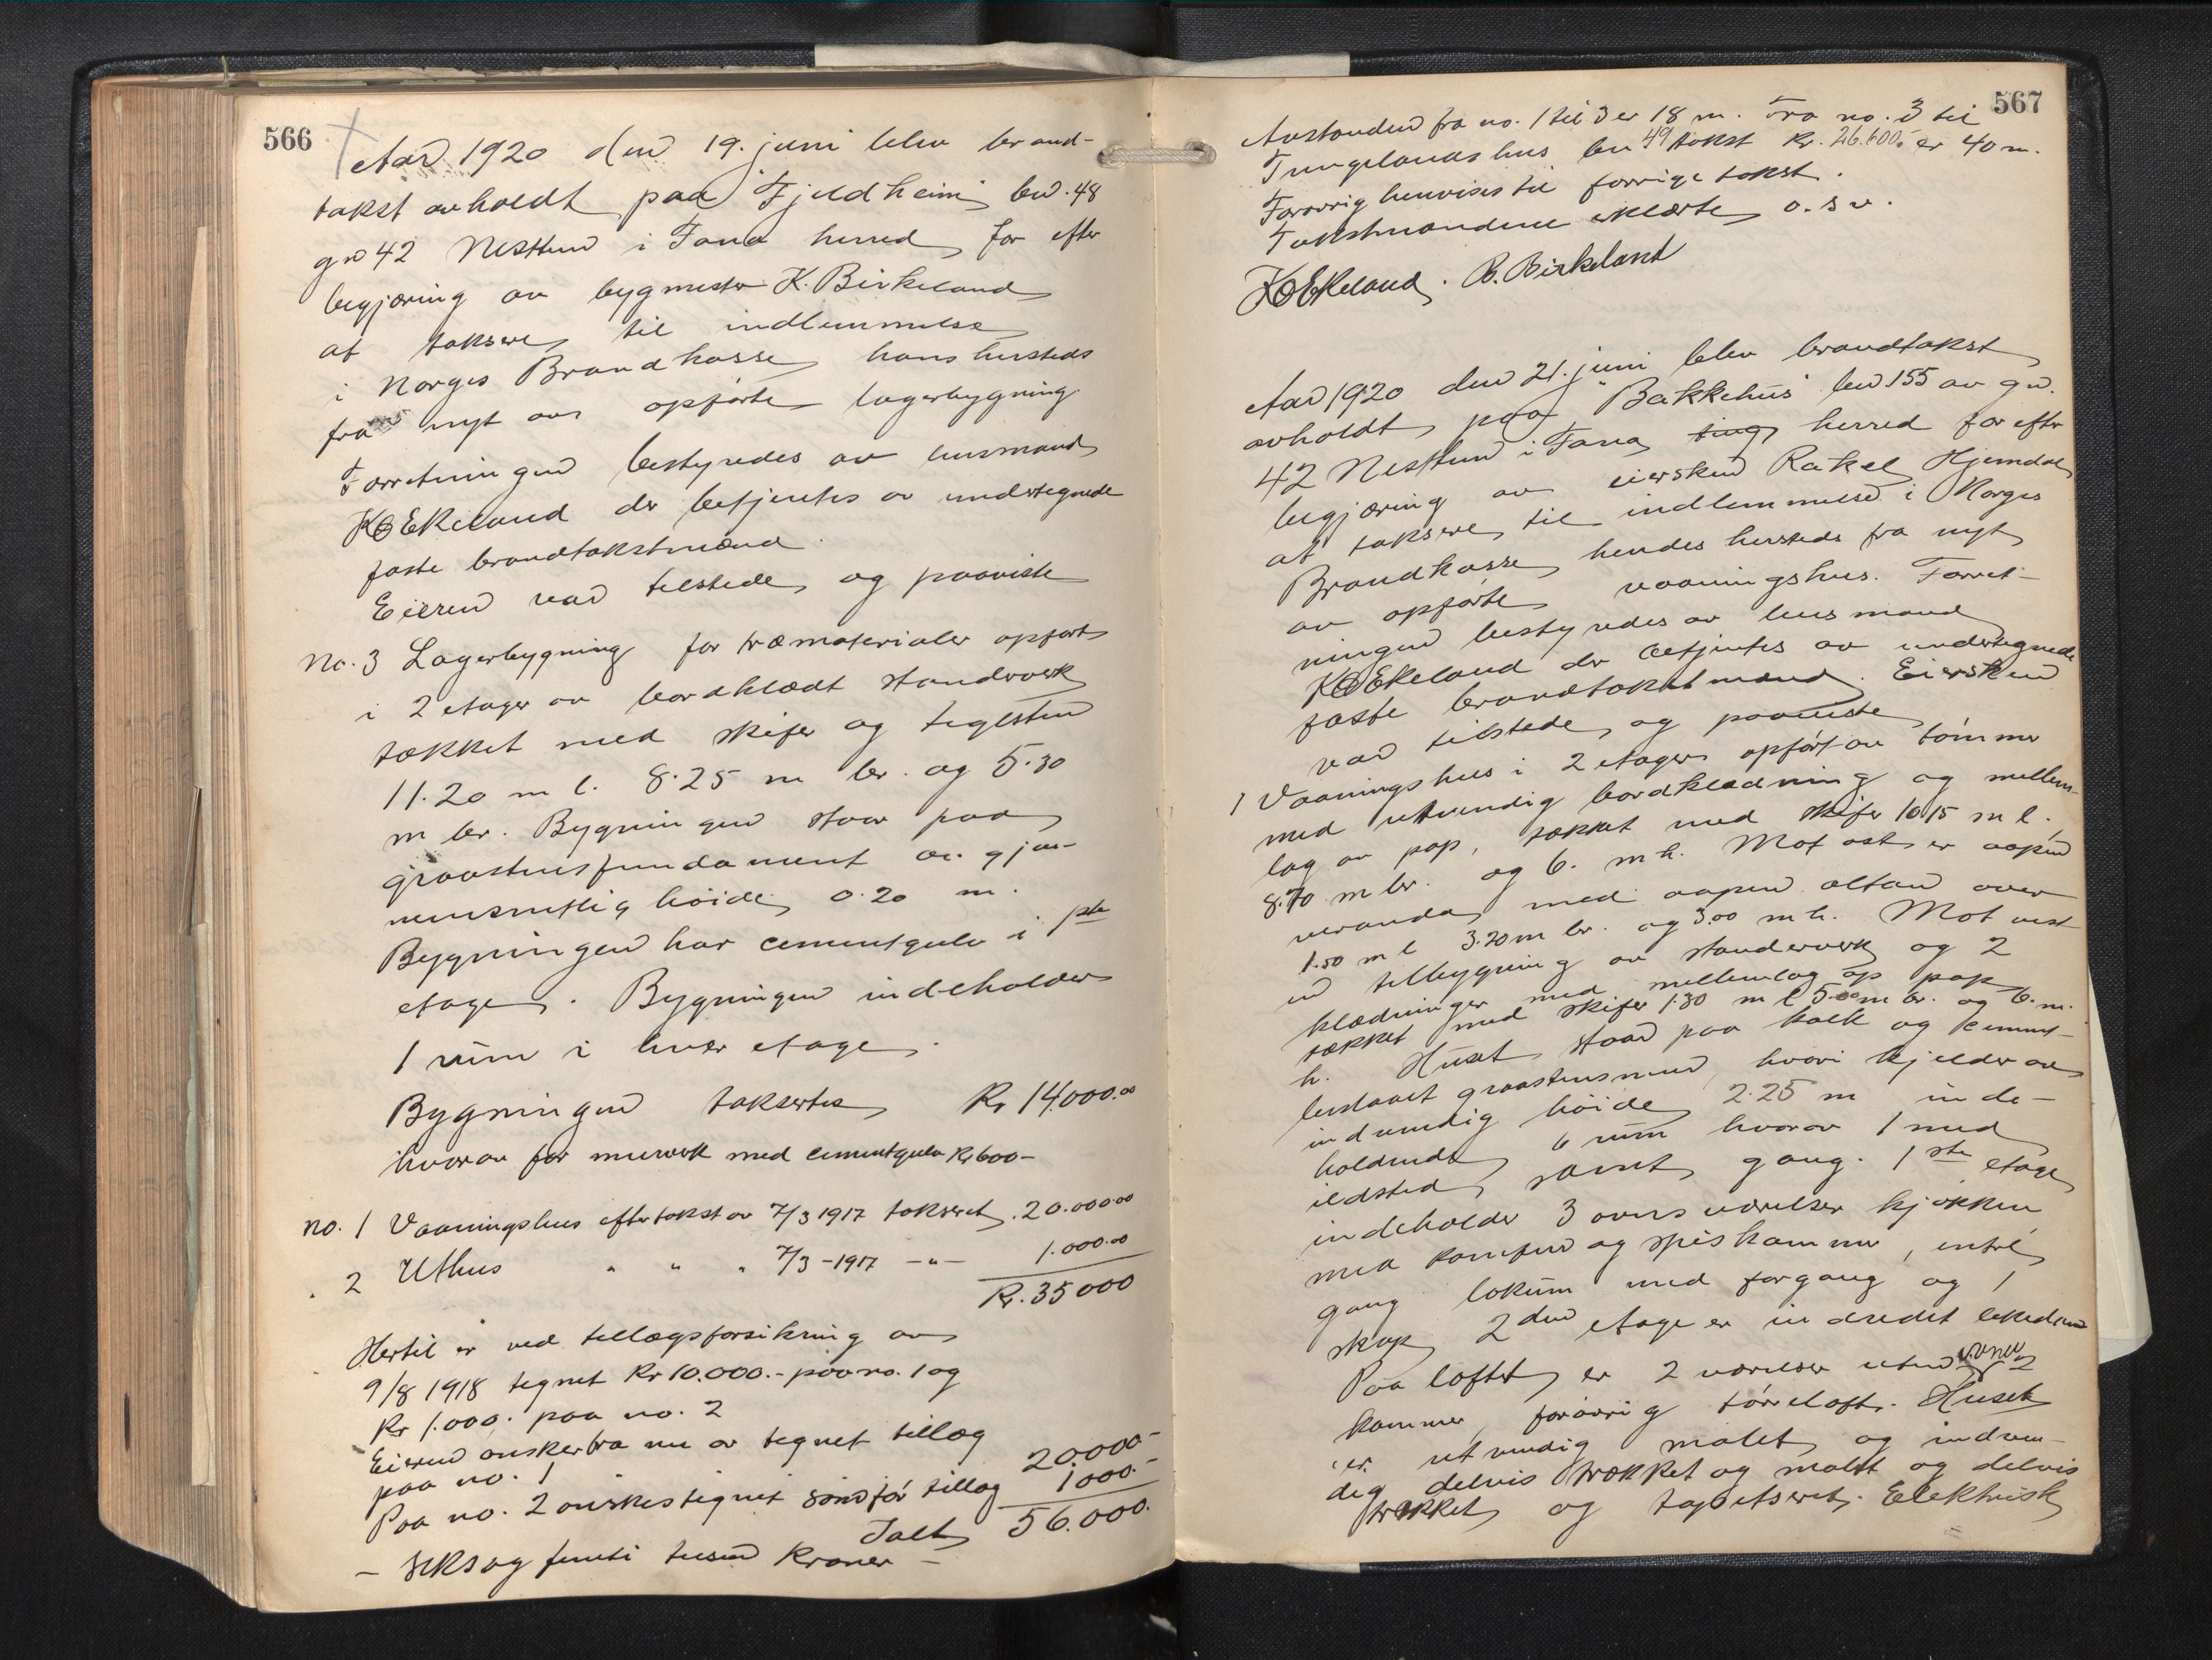 566
Aar 1920 den 19. juni blev brand-
takst avholdt paa "Fjeldheim" bnr. 48
gnr 42 Nesttun i Fana herred for efter
begjæring av bygmester K. Birkeland
at taksere til indlemmelse
i Norges Brandkasse hans hersteds
fra nyt av opførte lagerbygning.
Forretningen bestyredes av lensmand
KO Ekeland der betjentes av undertegnede
faste brandtakstmænd.
Eieren var tilstede og paaviste
No. 3 Lagerbygning for træmaterialer opført
i 2 etager av bordklædt standverk
tækket med skifer og teglsten
11.20 m l. 8.25 m br. og 5.30
m br. Bygningen staar paa
graastensfundament av gjen-
nemsnitlig høide 0.20 m.
Bygningen har cementgulv i 1ste
etage. Bygningen indeholder
1 rum i hver etage.
Bygningen takseres Kr 14.000.00
hvorav for murverk med cementgulv Kr 600-
no. 1 Vaaningshus efter takst av 7/3 1917 taksert 20.000.00
" 2 Uthus " " " 7/3-1917 -"- 1.000.00
Kr. 35 000
Hertil er ved tillægsforsikring av
9/8 1918 tegnet Kr 10.000.- paa no. 1 og
Kr 1.000. paa no. 2
Eieren ønsker fra nu av tegnet tillæg
paa no. 1 20.000-
Paa no. 2 ønskes tegnet som før tillæg 1000.-
Ialt 56.000.
- seks og femti tusen kroner -
567
Avstanden fra no. 1 til 3 er 18 m. Fra no. 3 til
Tungelands hus bnr 49 takst Kr. 26.600.- er 40 m.
Forøvrig henvises til forrige takst.
Takstmændene erklærte o. s. v.
KO Ekeland. B. Birkeland
Aar 1920 den 21. juni blev brandtakst
avholdt paa "Bakkehus" bnr 155 av gnr.
42 Nesttun i Fana ting herred for efter
begjæring av eiersken Rakel Hjemdal
at taksere til indlemmelse i Norges
Brandkasse hendes hersteds fra nyt
av opførte vaaningshus. Forret-
ningen bestyredes av lensmand
KO Ekeland der betjentes av undertegnede
faste brandtakstmænd. Eiersken
var tilstede og paaviste
1 Vaaningshus i 2 etager opført av tømmer
med utvendig bordklædning og mellem-
lag av pap, tækket med skifer 10.15 m l.
8.70 m br. og 6. m h. Mot øst er aapen
veranda med aapen altan over
1.50 m l 3.20 m br. og 3.00 m h. Mot vest
en tilbygning av standerverk og 2
klædninger med mellemlag av pap
tækket med skifer 1.30 m l 5.00 m br. og 6. m.
h. Huset staar paa kalk og cement-
beslaaet graastensmur, hvori kjelder av
indvendig høide 2.25 m inde-
holdende 6 rum hvorav 1 med
ildsted samt gang. 1ste etage
indeholder 3 værelser kjøkken
med komfur og spiskammer, entre
gang lokum med forgang og 1
skap 2den etage er indredet likedan
Paa loftet er 2 værelser uten ovner 2
kammer, forøvrig tørreloft. Huset
er utvendig malet og indven-
dig delvis trækket og malet og delvis
trækket og tapetsert. Elektrisk